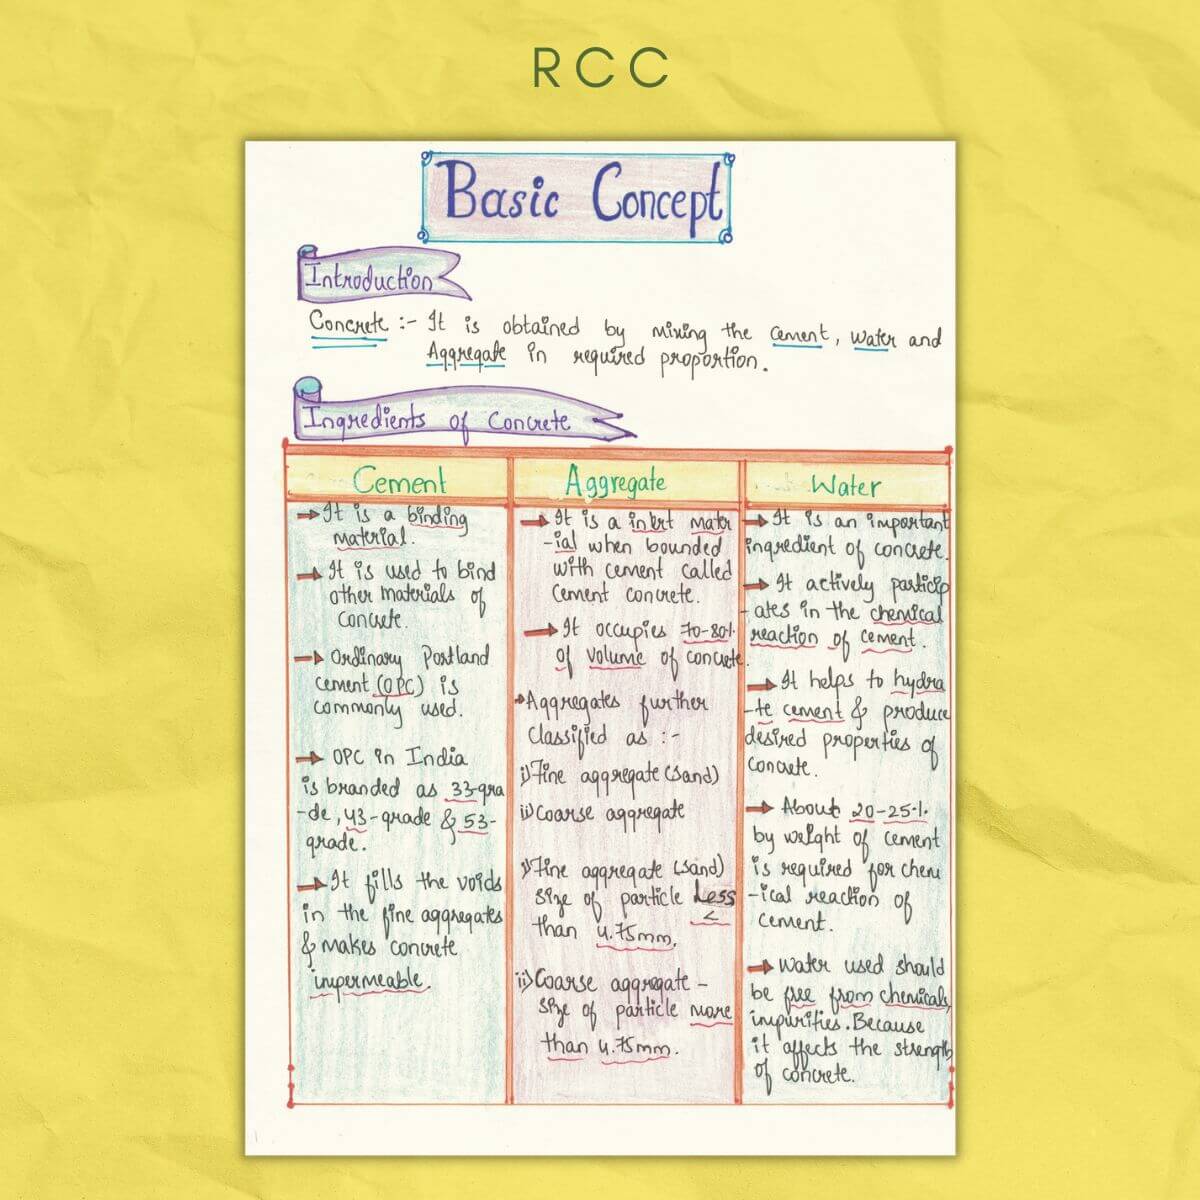 RCC
Basic Concept
Introduction
Concrete :- It is obtained by mixing the cement, water and
Aggregate in required proportion.
Ingredients of Concrete
Cement
→ It is a binding
material.
→ It is used to bind
other materials of
concrete.
→ Ordinary Portland
cement (OPC) is
commonly used.
→ OPC in India
is branded as 33-gra
-de, 43-grade & 53-
grade.
→ It fills the voids
in the fine aggregates
& makes concrete
impermeable.
Aggregate
→ It is a inert mater
-ial when bounded
with cement called
cement concrete.
→ It occupies 70-80%
of volume of concrete.
→ Aggregates further
classified as :-
i) Fine aggregate (sand)
ii) Coarse aggregate
i) Fine aggregate (sand)
size of particle Less
<
than 4.75mm.
ii) Coarse aggregate -
size of particle more
than 4.75mm.
Water
→ It is an important
ingredient of concrete.
→ It actively particip
-ates in the chemical
reaction of cement.
→ It helps to hydra
-te cement & produce
desired properties of
concrete.
→ About 20-25%
by weight of cement
is required for chem
-ical reaction of
cement.
→ Water used should
be free from chemicals,
impurities. Because
it affects the strength
of concrete.